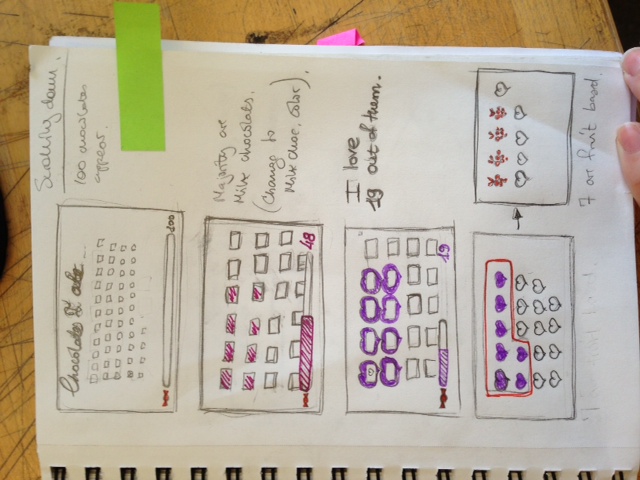 Scrolling down.
Chocolates I ate ...
100 chocolates
appear.
100
Majority are
Milk chocolats.
(Change to
Milk choc. color).
48
I love
19 out of them.
19
7 are fruit based.